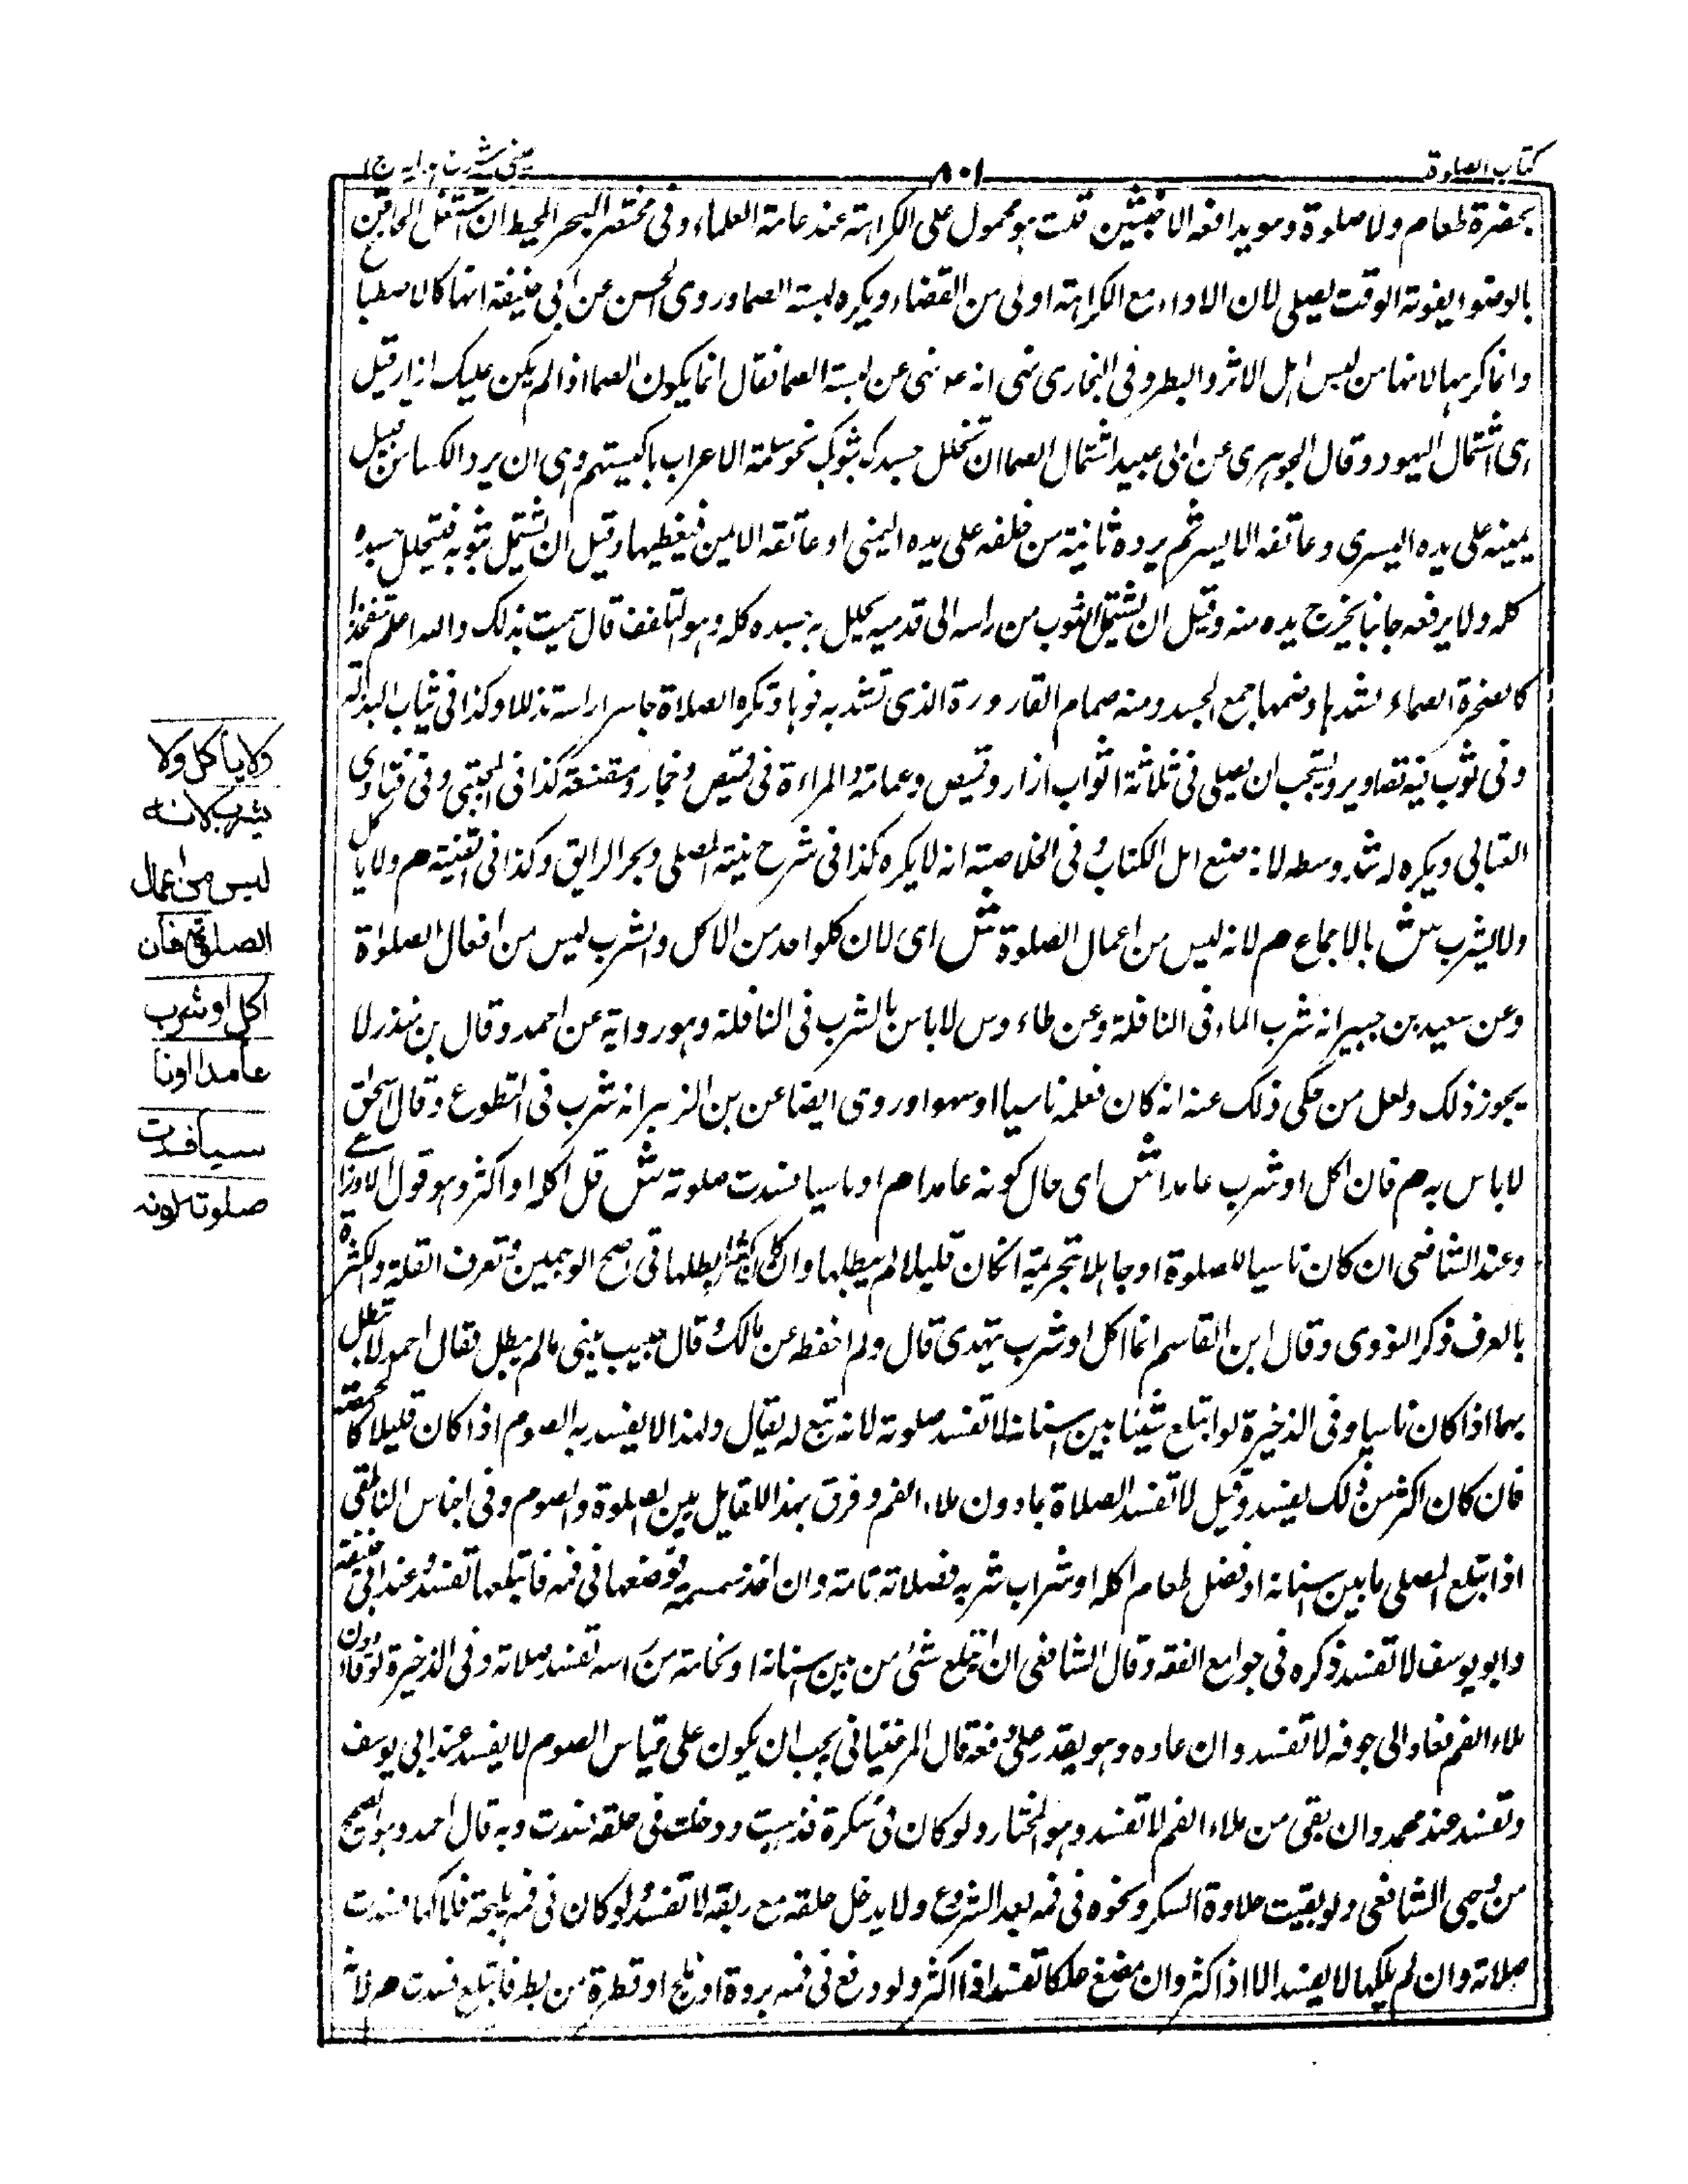 كتاب الصلوة
٨٠١
عينى شرح هدايه ج١
بحضرة طعام ولا صلوة وهو يدافعه الاخبثين قلت هو محمول على الكراهة عند عامة العلماء وفى مختصر البحر المحيط ان اشتغل الحاقن
بالوضوء يفوته الوقت يصلى لان الاداء مع الكراهة اولى من القضاء ويكره لبسة الصما وروى الحسن عن ابى حنيفة انها كالاضطباع
وانما كرهها لانها من لبس اهل الاشر والبطر وفى البخارى نهى انه عم نهى عن لبسة الصما فقال انما يكون الصما اذا لم يكن عليك ازار قيل
هى اشتمال اليهود وقال الجوهرى عن ابى عبيد اشتمال الصما ان تخلل جسدك بثوبك نحو شملة الاعراب باكيستهم وهى ان يرد الكسا من قبيل
يمينه على يده اليسرى وعاتقه الايسر ثم يرده ثانية من خلفه على يده اليمنى او عاتقه الايمن فيغطيها وقيل ان يشتمل بثوبه فتجلل جسده
كله ولا يرفعه جانبا يخرج يده منه وقيل ان يشتمل الثوب من راسه الى قدميه يجلل به جسده كله وهو التلفف قال سميت بذلك والله اعلم
كالصخرة الصماء لشدها وضمها جمع الجسد ومنه صمام القارورة الذى تشد به فوها وتكره الصلاة حاسرا راسه تذللا وكذا فى ثياب البذلة
وفى ثوب فيه تصاوير ويستحب ان يصلى فى ثلاثة اثواب ازار وقميص وعمامة والمراءة فى قميص وخمار ومقنعة كذا فى المجتبى وفى فتاوى
العتابى ويكره له شد وسطه لانه صنع اهل الكتاب وفى الخلاصة انه لا يكره كذا فى شرح منية المصلى وبحر الرايق وكذا فى القنية م ولا ياكل
ولا يشرب ش بالاجماع م لانه ليس من اعمال الصلوة ش اى لان كلواحد من الاكل والشرب ليس من افعال الصلواة
وعن سعيد بن جبير انه شرب الماء فى النافلة وعن طاءوس لاباس بالشرب فى النافلة وهو رواية عن احمد وقال بن منذر لا
يجوز ذلك ولعل من حكى ذلك عنه انه كان فعله ناسيا او سهوا وروى ايضا عن بن الزبير انه شرب فى التطوع وقال اسحق
لاباس به م فان اكل او شرب عامدا ش اى حال كونه عامدا م او ناسيا فسدت صلوته ش قل اكله او اكثر وهو قول الاوزاعى
وعند الشافعى ان كان ناسيا للصلوة او جاهلا بتحريمة انكان قليلا لم يبطلها وان كان كثيرا يبطلها فى اصح الوجهين وتعرف القلة والكثرة
بالعرف ذكر النووى وقال ابن القاسم انما اكل او شرب يبتدى قال ولم احفظه عن مالك وقال حبيب يبنى مالم يطل فقال احمد لا تبطل
بهما اذا كان ناسيا وفى الذخيرة لو ابتلع شيئا بين اسنانه لا تفسد صلوته لانه تبع له يقال ولهذا لا يفسد به الصوم اذا كان قليلا كالحمصة
فان كان اكثر من ذلك يفسد وقيل لا تفسد الصلاة بما دون ملاء الفم وفرق بهذا القايل بين الصلوة والصوم وفى اجناس الناطقى
اذا ابتلع المصلى ما بين اسنانه او فضل طعام اكله او شراب شربه فصلاته تامة وان اخذ سمسمة فوضعها فى فمه فابتلعها تفسد وعند ابى حنيفة
وابو يوسف لا تفسد ذكره فى جوامع الفقه وقال الشافعى ان ابتلع شئ من بين اسنانه او نخامة من راسه تفسد صلاته وفى الذخيرة لو قاء دون
ملاء الفم فعاد الى جوفه لا تفسد وان عاده وهو يقدر على دفعه قال المرغينانى يجب ان يكون على قياس الصوم لا يفسد عند ابى يوسف
وتفسد عند محمد وان بقى من ملاء الفم لا تفسد وهو المختار ولو كان فى سكرة فذهبت ودخلت فى حلقه فسدت وبه قال احمد وهو الصحيح
من وجهى الشافعى ولو بقيت حلاوة السكر ونحوه فى فمه بعد الشروع ولا يدخل حلقه مع ريقه لا تفسد ولو كان فى فمه هليلجة فلاكها فسدت
صلاته وان لم يلكها لا يفسد الا اذا كثر وان مضغ علكا تفسد اذا اكثر ولو وقع فى فمه بردة او ثلج او قطرة من مطر فابتلع فسدت م لانه
ولا ياكل ولا
يشرب لانه
ليس من اعمال
الصلوة فان
اكل او شرب
عامدا او نا
سيا فسدت
صلوته لانه